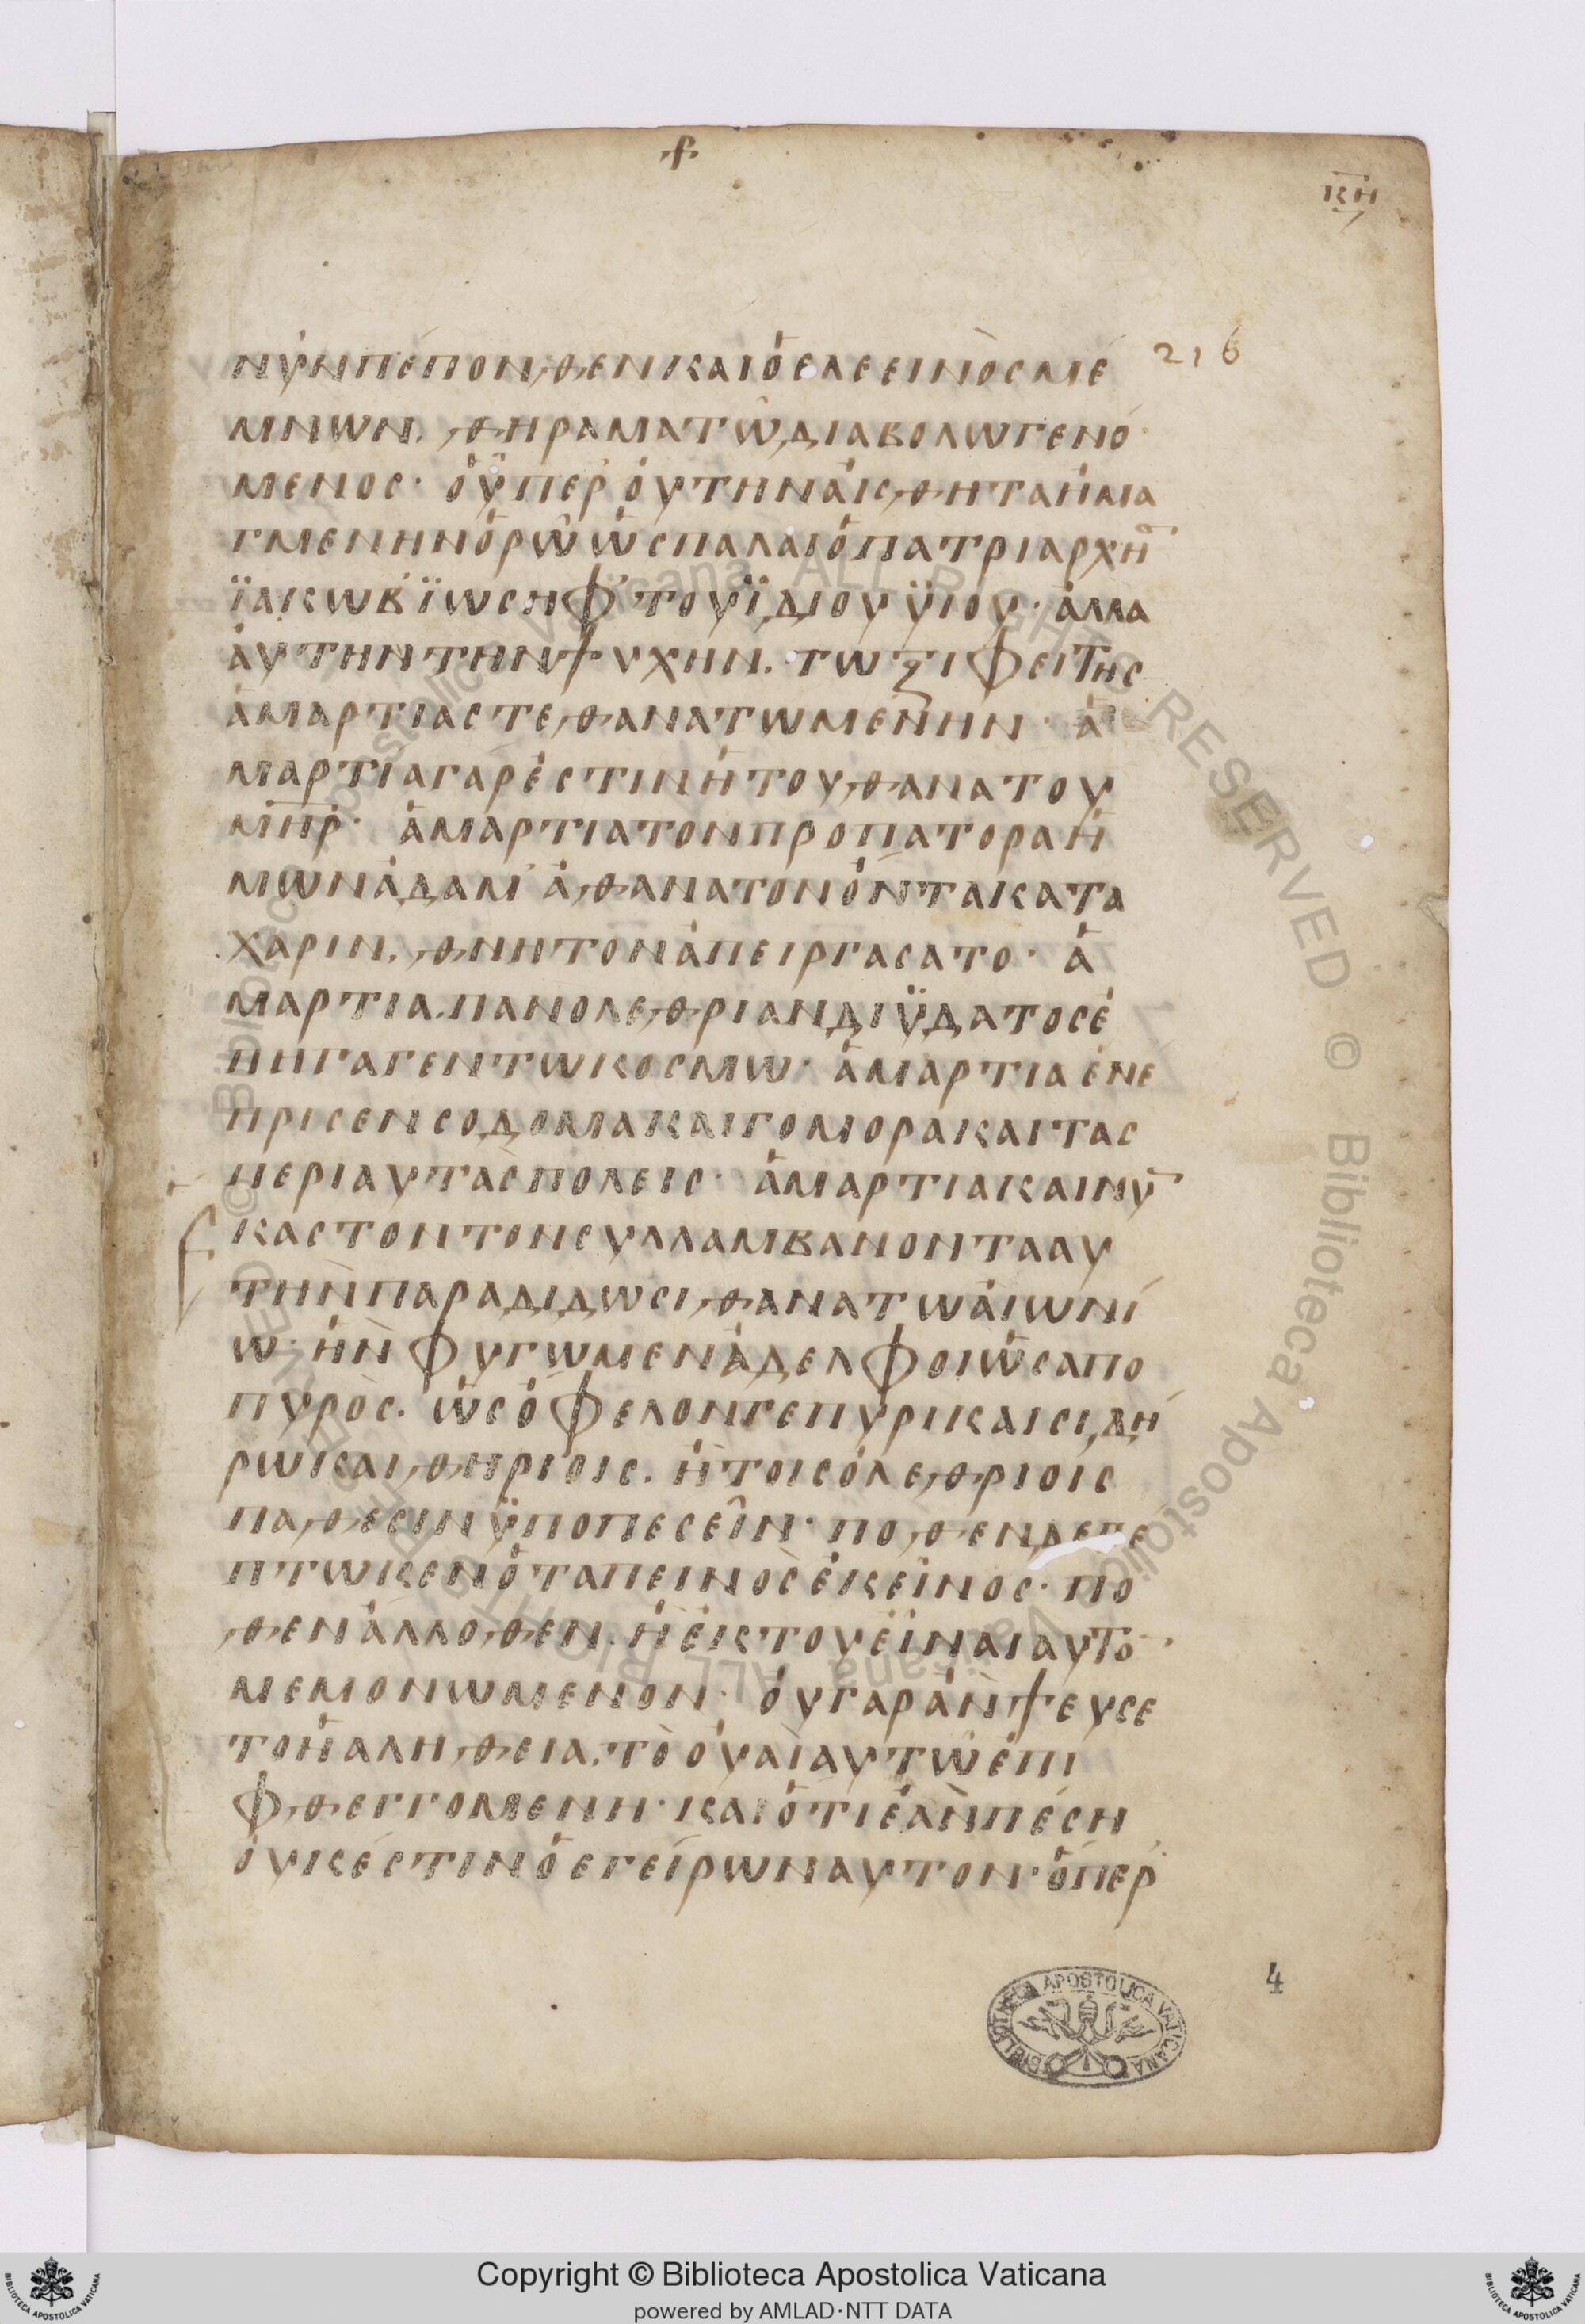 ✝
ΚΗ
ΝΥΝΠΕΠΟΝΘΕΝΚΑΙὉΕΛΕΕΙΝῸCΜΈ
216
ΜΝΩΝ. ΘΗΡΑΜΑΤΩΔΙΑΒΟΛΩΓΕΝΌ
ΜΕΝΟC· ΟὟΠΕΡ ΟΥΤΗΝΑΙCΘΗΤΑΗΜΑ
ΓΜΕΝΗΝὉΡΩ ὩCΠΑΛΑΙὉΠΑΤΡΙΑΡΧΗC
ΪΑΚΩΒΪΩCΗΦ ΤΟΥΪΔΙΟΥΫΙΟΥ· ἈΛΛΑ
ἈΥΤΗΝΤΗΝΨΥΧΗΝ. ΤΩΞΙΦΕΙΤΗC
ἉΜΑΡΤΙΑCΤΕΘΑΝΑΤΩΜΕΝΗΝ· Ἁ
ΜΑΡΤΙΑΓΑΡἘCΤΙΝἩΤΟΥΘΑΝΑΤΟΥ
ΜΗΡ· ἉΜΑΡΤΙΑΤΟΝΠΡΟΠΑΤΟΡΑἩ
ΜΩΝἈΔΑΜ ἈΘΑΝΑΤΟΝὌΝΤΑΚΑΤΑ
ΧΑΡΙΝ. ΘΝΗΤΟΝἈΠΕΙΡΓΑCΑΤΟ· Ἁ
ΜΑΡΤΙΑ.ΠΑΝΟΛΕΘΡΙΑΝΔΙΫΔΑΤΟCἘ
ΠΗΓΑΓΕΝΤΩΚΟCΜΩ· ἉΜΑΡΤΙΑ ἘΝΕ
ΠΡΙCΕΝCΟΔΟΜΑΚΑΙΓΟΜΟΡΑΚΑΙΤΑC
ΠΕΡΙΑΥΤΑCΠΟΛΕΙC· ἉΜΑΡΤΙΑΚΑΙΝῩ
ΚΑCΤΟΝΤΟΝCΥΛΛΑΜΒΑΝΟΝΤΑΑΥ
ΤΗΝΠΑΡΑΔΙΔΩCΙΘΑΝΑΤΩΑΙΩΝΊ
Ω· ἩΝ ΦΥΓΩΜΕΝἈΔΕΛΦΟΙὩCΑΠΟ
ΠΥΡῸC. ὩCὌΦΕΛΟΝΓΕΠΥΡΙΚΑΙCΙΔΉ
ΡΩΚΑΙΘΗΡΙΟΙC. ἪΤΟΙCὈΛΕΘΡΙΟΙC
ΠΑΘΕCΙΝΫΠΟΠΕCΕΙ͂Ν· ΠΟΘΕΝΔΕΠΕ
ΠΤΩΚΕΝὉΤΑΠΕΙΝΟCἘΚΕΙ͂ΝΟC· ΠΟ
ΘΕΝἈΛΛΟΘΕΝ. ἪἘΚΤΟΥΕΪΝΑΙΑΥΤΟ̄
ΜΕΜΟΝΩΜΕΝΟΝ· ΟΥΓΑΡΑΝΨΕΥCΕ
ΤΟἩΑΛΗΘΕΙΑ.ΤῸΟΥΑΙΑΥΤΩἘΠΙ
ΦΘΕΓΓΟΜΕΝΗ· ΚΑΙὍΤΙἘΑΝΠΕCΗ
ΟΥΚΕCΤΙΝὉΕΓΕΙΡΩΝΑΥΤΟΝ· ὍΠΕΡ
4
BIBLIOTHECA APOSTOLICA VATICANA
Copyright © Biblioteca Apostolica Vaticana
powered by AMLAD·NTT DATA